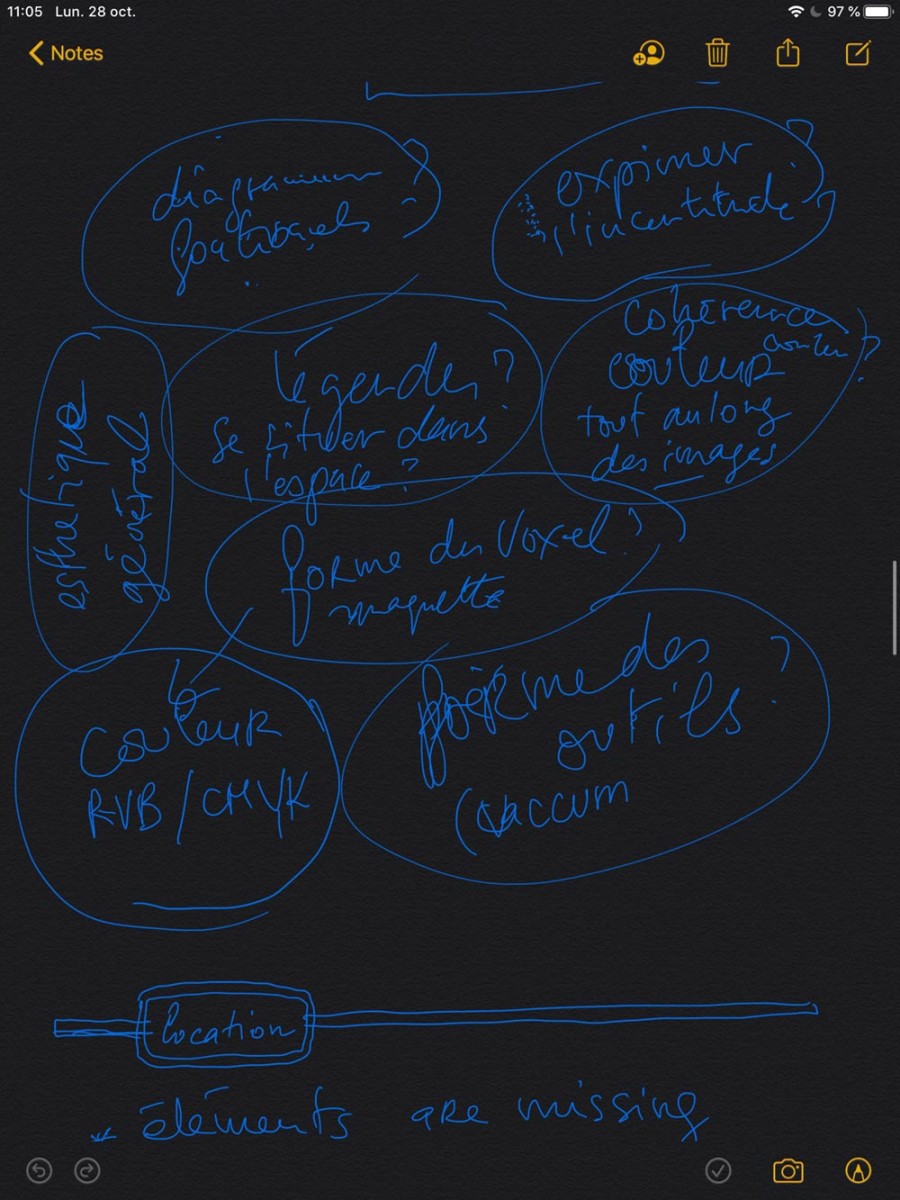 11:05 Lun. 28 oct.
97 %
Notes
diagrammes ?
exprimer ?
l'incertitude ?
légendes ?
Se situer dans
l'espace ?
cohérence
couleur ?
tout au long
des images
esthetique
général
forme du Voxel ?
maquette
Couleur
RVB / CMYK
forme des ?
outils
(vaccum
location
* éléments are missing